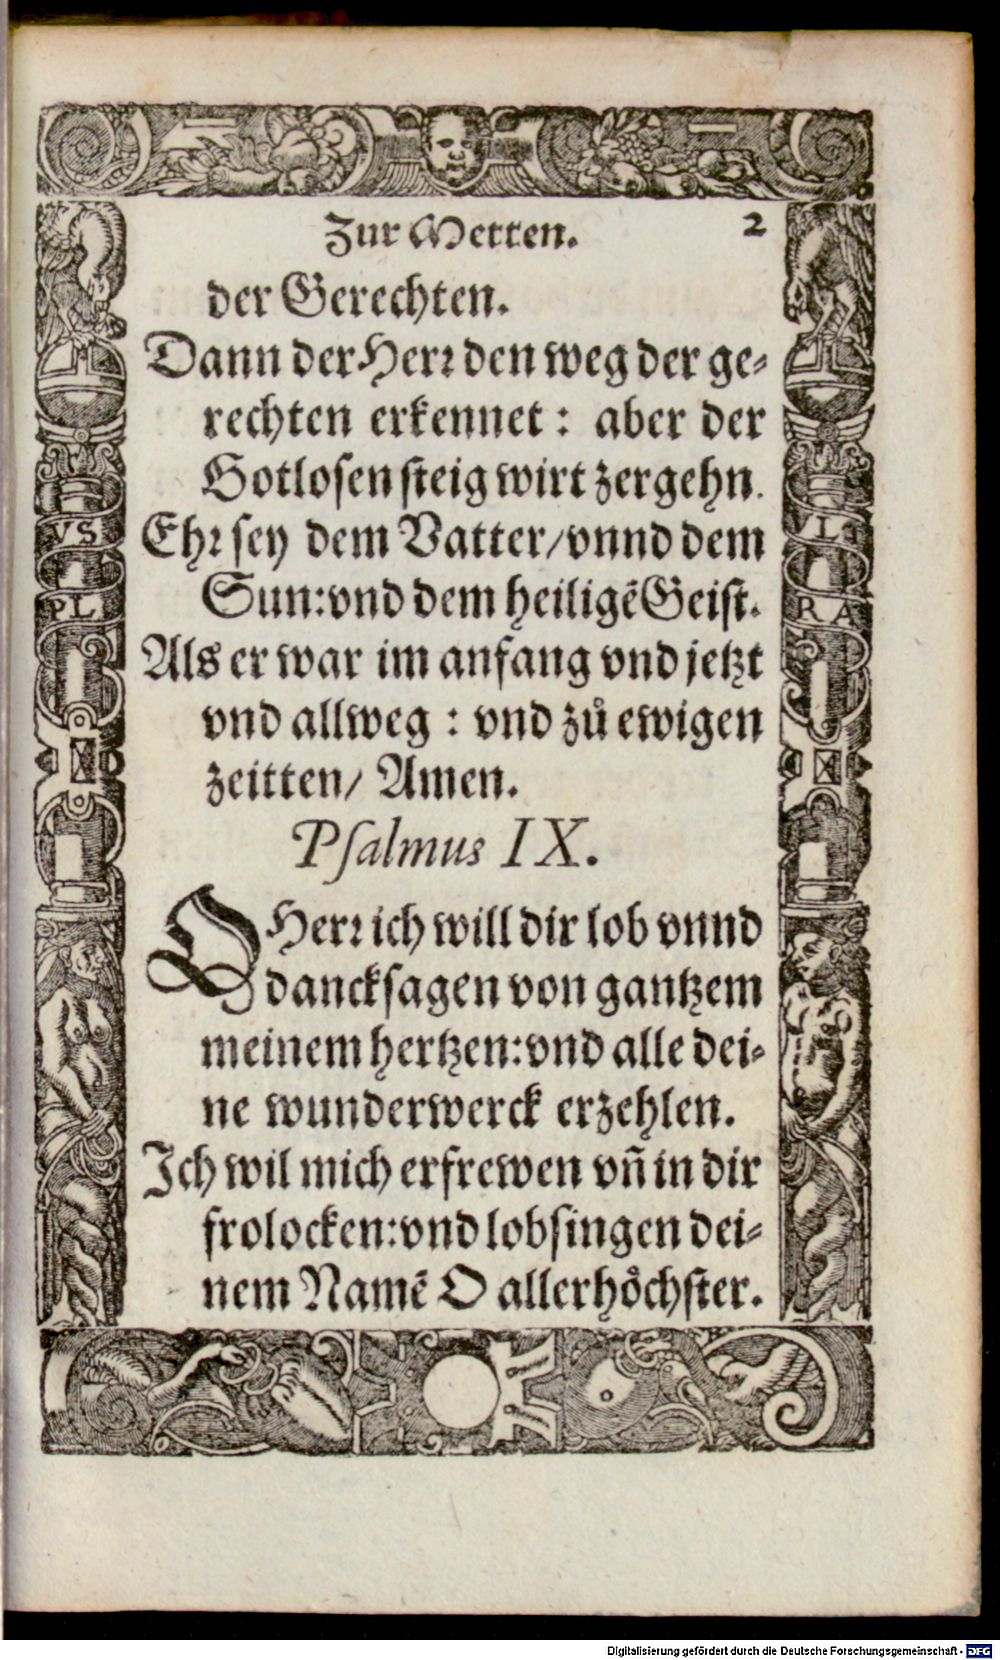 Zur Metten. 2
der Gerechten.
Dann der Herr den weg der ge⸗
rechten erkennet : aber der
Gotlosen steig wirt zergehn.
Ehr sey dem Vatter/vnnd dem
Sun:vnd dem heiligẽ Geist.
Als er war im anfang vnd jetzt
vnd allweg : vnd zů ewigen
zeitten/ Amen.
Psalmus IX.
O Herr ich will dir lob vnnd
dancksagen von gantzem
meinem hertzen:vnd alle dei⸗
ne wunderwerck erzehlen.
Ich wil mich erfrewen vñ in dir
frolocken:vnd lobsingen dei⸗
nem Namẽ O allerhöchster.
VS
PL
VL
RA
Digitalisierung gefördert durch die Deutsche Forschungsgemeinschaft - DFG